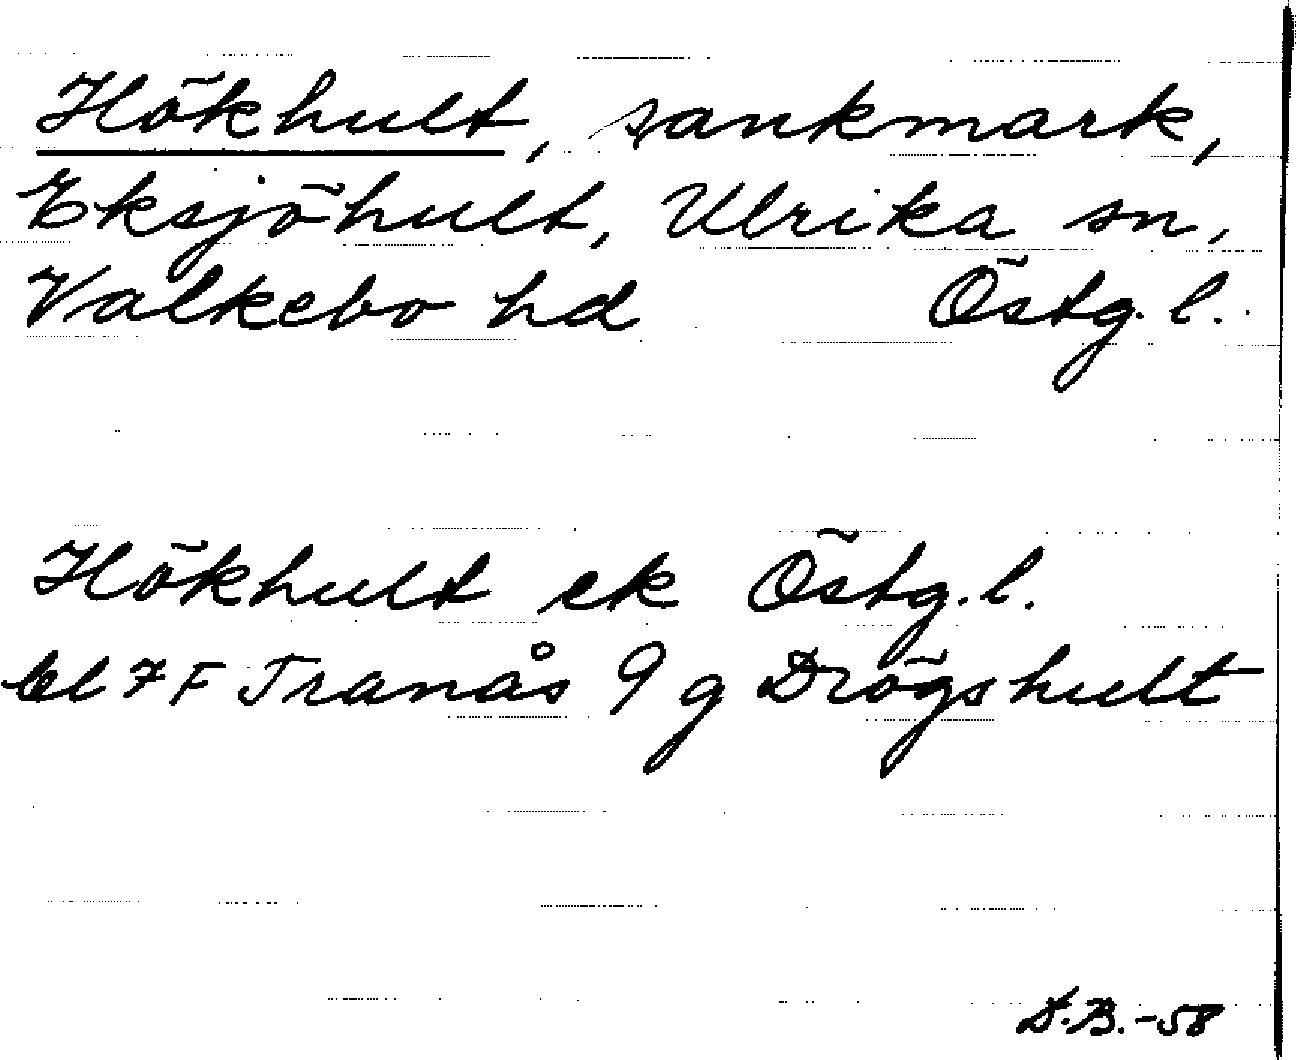 Hökhult, sankmark,
Eksjöhult, Ulrika sn,
Valkebo hd Östg. l.
Hökhult ek Östg. l.
bl 7 F Tranås 9 g Drögshult
D.B. -58